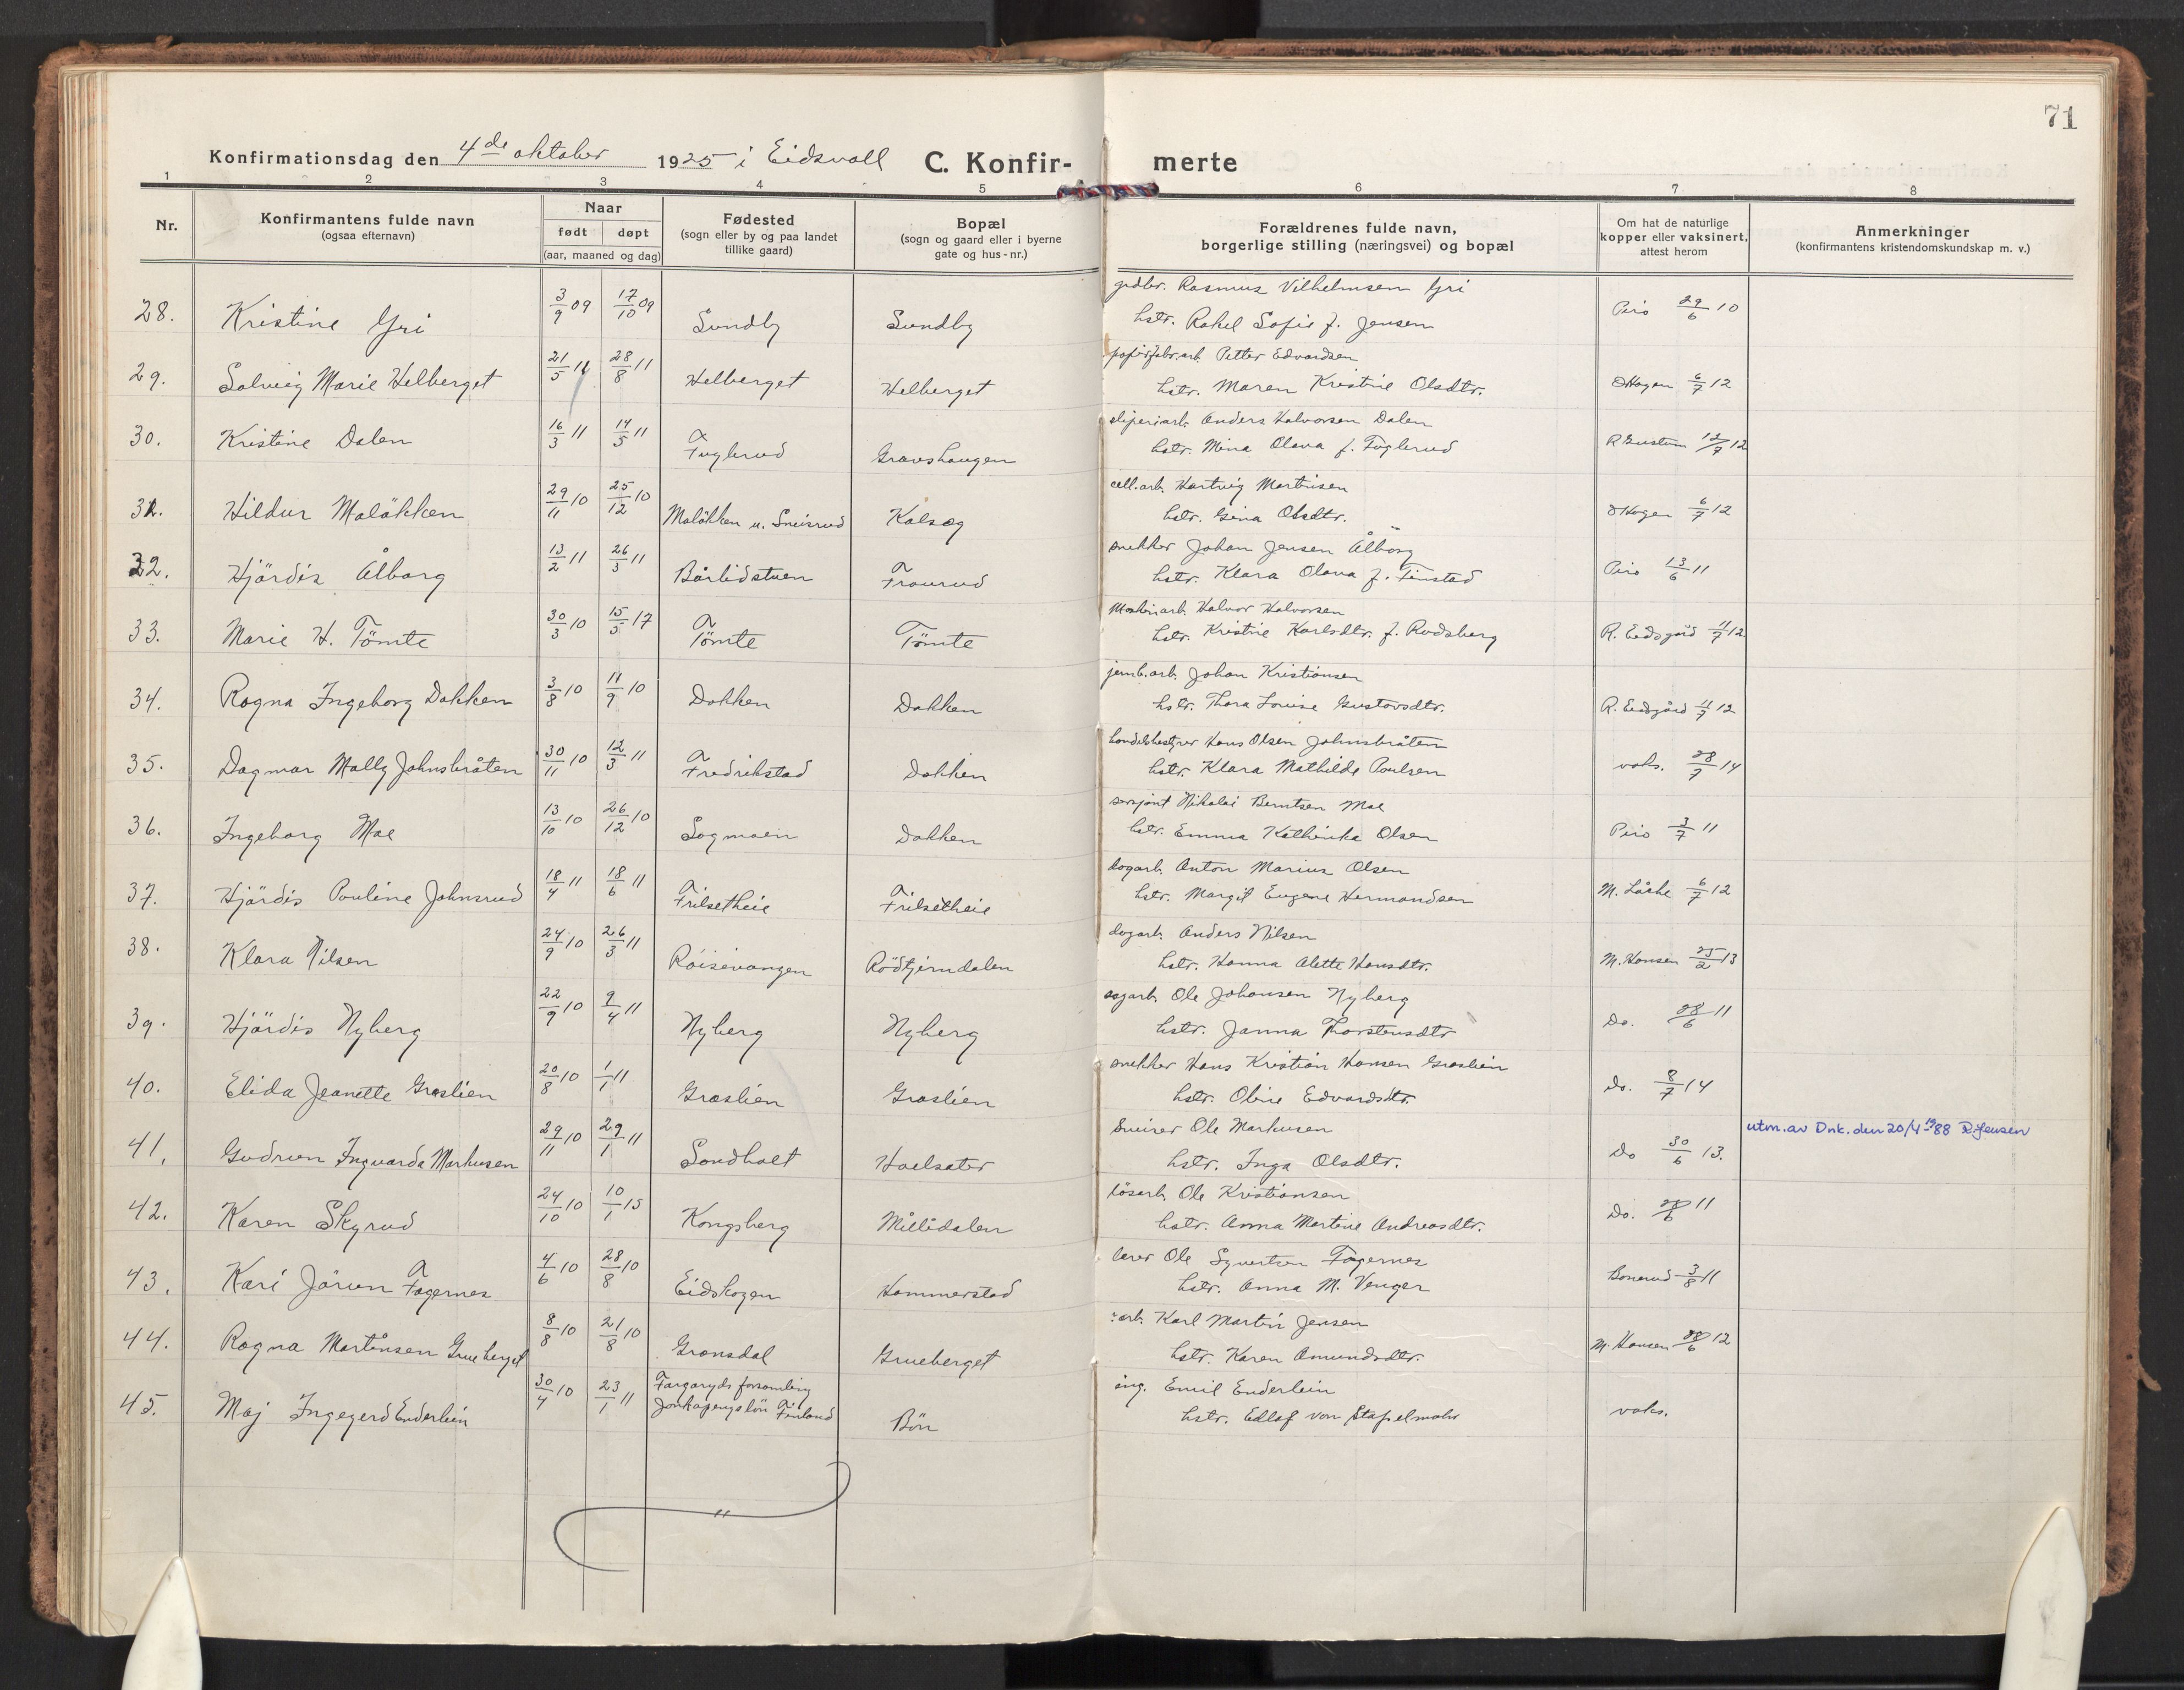 71
Konfirmationsdag den 4de oktober 1925 i Eidsvoll C. Konfir- merte
1 2 3 4 5 6 7 8
Nr. Konfirmantens fulde navn (ogsaa efternavn) Naar født døpt (aar, maaned og dag) Fødested (sogn eller by og paa landet tillike gaard) Bopæl (sogn og gaard eller i byerne gate og hus-nr.) Forældrenes fulde navn, borgerlige stilling (næringsvei) og bopæl Om hat de naturlige kopper eller vaksinert, attest herom Anmerkninger (konfirmantens kristendomskundskap m. v.)
28. Kristine Gri 3/9 09 17/10 09 Sundby Sundby grdbr. Rasmus Vilhelmsen Gri
hstr. Rakel Sofie f. Jensen Piro 29/6 10
29. Solveig Marie Helberget 21/5 11 28/8 11 Helberget Helberget papirfabr.arb. Petter Edvardsen
hstr. Maren Kristine Olsdtr. OHagen 6/7 12
30. Kristine Dalen 16/3 11 14/5 11 Fuglerud Gravshaugen sliperiarb. Anders Halvorsen Dalen
hstr. Mina Olava f. Fuglerud R 12/7 12
31. Hildur Maløkken 29/11 10 25/12 10 Maløkken u. Sneisrud Kolsæg cell.arb. Hartvig Martinsen
hstr. Gina Olsdtr. OHagen 6/7 12
32. Hjördis Ålborg 13/2 11 26/3 11 Bårlidstuen Traurud snekker Johan Jensen Ålborg
hstr. Klara Olava f. Finstad Piro 13/6 11
33. Marie H. Tömte 30/3 10 15/5 17 Tömte Tömte Maskinarb. Halvor Halvorsen
hstr. Kristine Karlsdtr. f. Rodsberg R. Eidsgård 11/7 12
34. Ragna Ingeborg Dokken 3/8 10 11/9 10 Dokken Dokken jernb.arb. Johan Kristiansen
hstr. Thora Louise Gustavsdtr. R. Eidsgård 11/7 12
35. Dagmar Mally Johnsbråten 30/11 10 12/3 11 Fredrikstad Dokken handelsbestyrer Hans Olsen Johnsbråten
hstr. Klara Mathilde Poulsen vaks. 28/7 14
36. Ingeborg Moe 13/10 10 26/12 10 Sogmoen Dokken sersjant Nikolai Berntsen Moe
hstr. Emma Kathinka Olsen Piro 3/7 11
37. Hjördis Pauline Johnsrud 18/4 11 18/6 11 Frilsetheie Frilsetheie dagarb. Anton Marius Olsen
hstr. Margit Eugene Hermandsen M. Låche 6/7 12
38. Klara Nilsen 24/9 10 26/3 11 Röisevangen Rödtjerndalen dagarb. Anders Nilsen
hstr. Hanna Alette Hansdtr. M. Hansen 25/2 13
39. Hjördis Nyberg 22/9 10 9/4 11 Nyberg Nyberg sagarb. Ole Johansen Nyberg
hstr. Janna Thorstensdtr Do. 28/6 11
40. Elida Jeanette Graslien 20/8 10 1/1 11 Graslien Graslien snekker Hans Kristian Hansen Graslien
hstr. Oline Edvardsdtr. Do. 8/7 14
41. Gudrun Ingvarda Markusen 29/11 10 29/1 11 Sandholt Hoelsæter Sveiser Ole Markusen
hstr. Inga Olsdtr. Do 30/6 13. utm. av Dnk. den 20/4 1988 R.Jensen
42. Karen Skyrud 24/10 10 10/1 15 Kongsberg Millidalen lösarb. Ole Kristiansen
hstr. Anna Martine Andreasdtr. Do. 28/6 11
43. Kari Jörun Fagernes 4/6 10 28/8 10 Eidskogen Hammerstad lærer Ole Syvertsen Fagernes
hstr. Anna M. Venger Bonerud 3/8 11
44. Ragna Martinsen Grueberget 8/8 10 21/8 10 Gransdal Grueberget arb. Karl Martin Jensen
hstr. Karen Amundsdtr. M. Hansen 28/6 12
45. Maj Ingegerd Enderlein 30/4 10 23/1 11 Fargaryds forsamling
Jonkøpingslän Finland Bön ing. Emil Enderlein
hstr. Edlaf von Stapelmohr vaks.
"